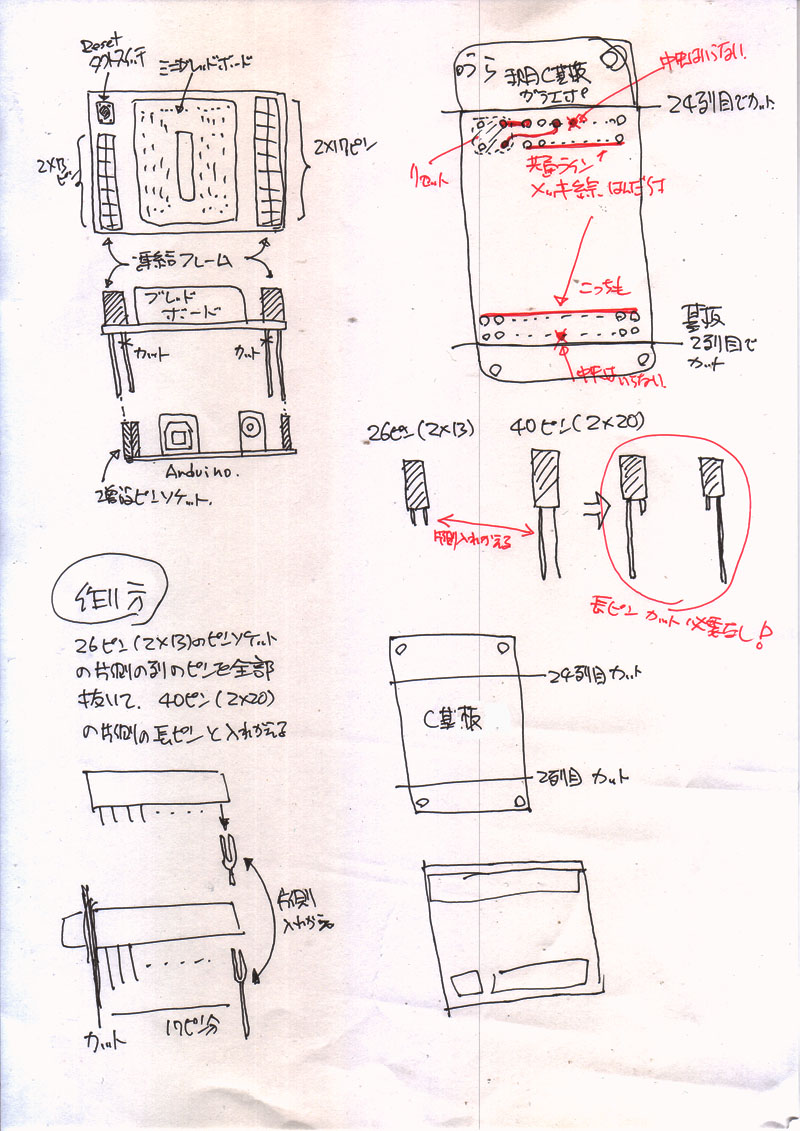 Reset
タクトスイッチ
ミニブレッドボード
2×13
ピン
2×17ピン
連結フレーム
ブレッド
ボード
カット
カット
Arduino.
増設ピンソケット.
うら
秋月C基板
ガラエポ
中央はいらない.
24列目でカット.
リセット
共通ライン
メッキ線はんだづけ
こっちも
基板
2列目で
カット
中央はいらない.
26ピン(2×13)
40ピン(2×20)
片側入れかえる
長ピン カット必要なし!
作り方
26ピン(2×13)のピンソケット
の片側の列のピンを全部
抜いて、40ピン(2×20)
の片側の長ピンと入れかえる
24列目 カット
C基板
2列目 カット
片側
入れかえる
カット
17ピン分